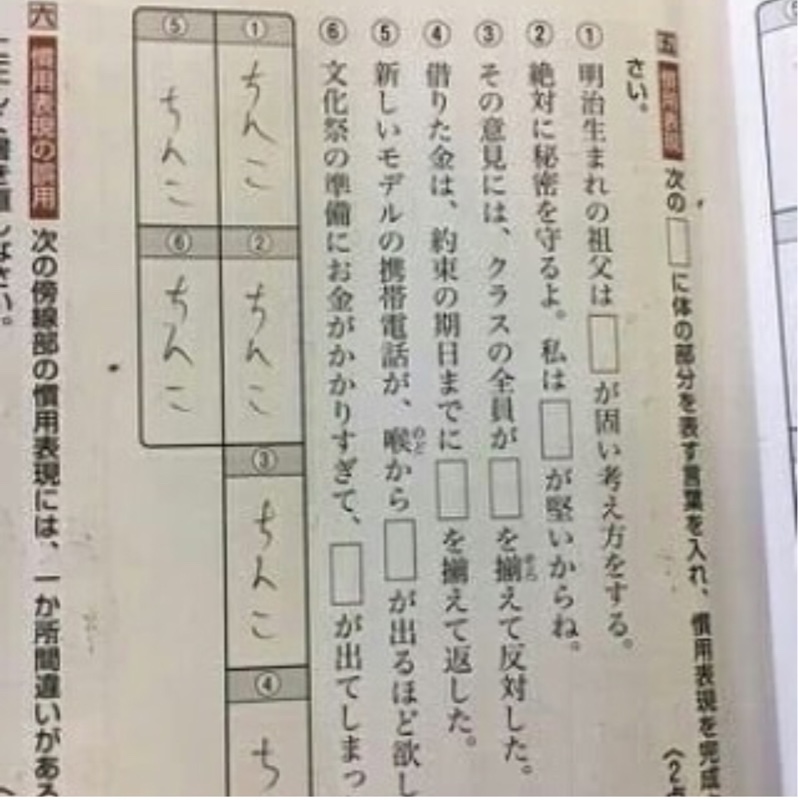 五 慣用表現 次の□に体の部分を表す言葉を入れ、慣用表現を完成
さい。
① 明治生まれの祖父は□が固い考え方をする。
② 絶対に秘密を守るよ。私は□が堅いからね。
③ その意見には、クラスの全員が□を揃えて反対した。
④ 借りた金は、約束の期日までに□を揃えて返した。
⑤ 新しいモデルの携帯電話が、喉から□が出るほど欲し
⑥ 文化祭の準備にお金がかかりすぎて、□が出てしまっ
① ちんこ
② ちんこ
③ ちんこ
④ ち
⑤ ちんこ
⑥ ちんこ
六 慣用表現の誤用 次の傍線部の慣用表現には、一か所間違いがある
さい。